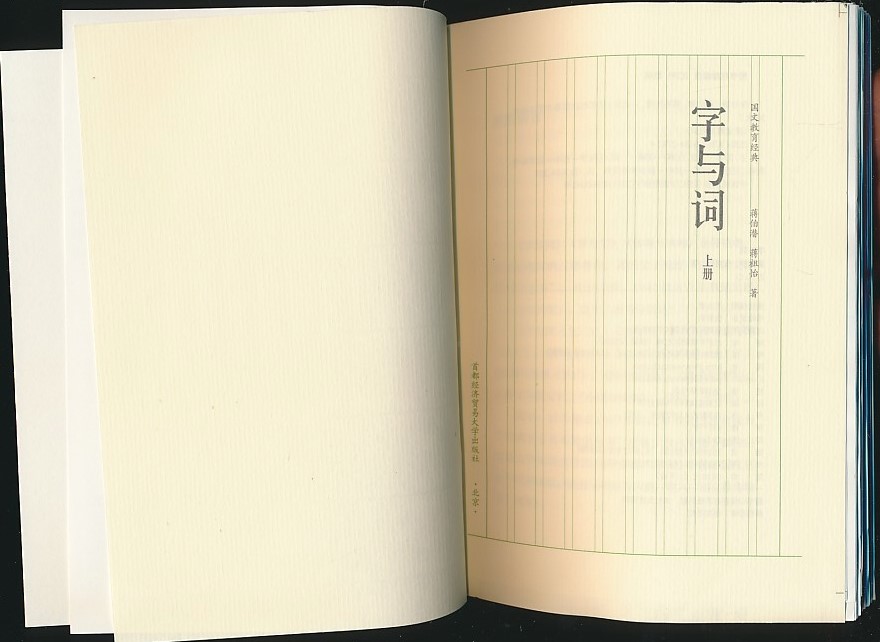 国文教育经典
蒋伯潜 蒋祖怡 著
字与词
上册
首都经济贸易大学出版社
·北京·